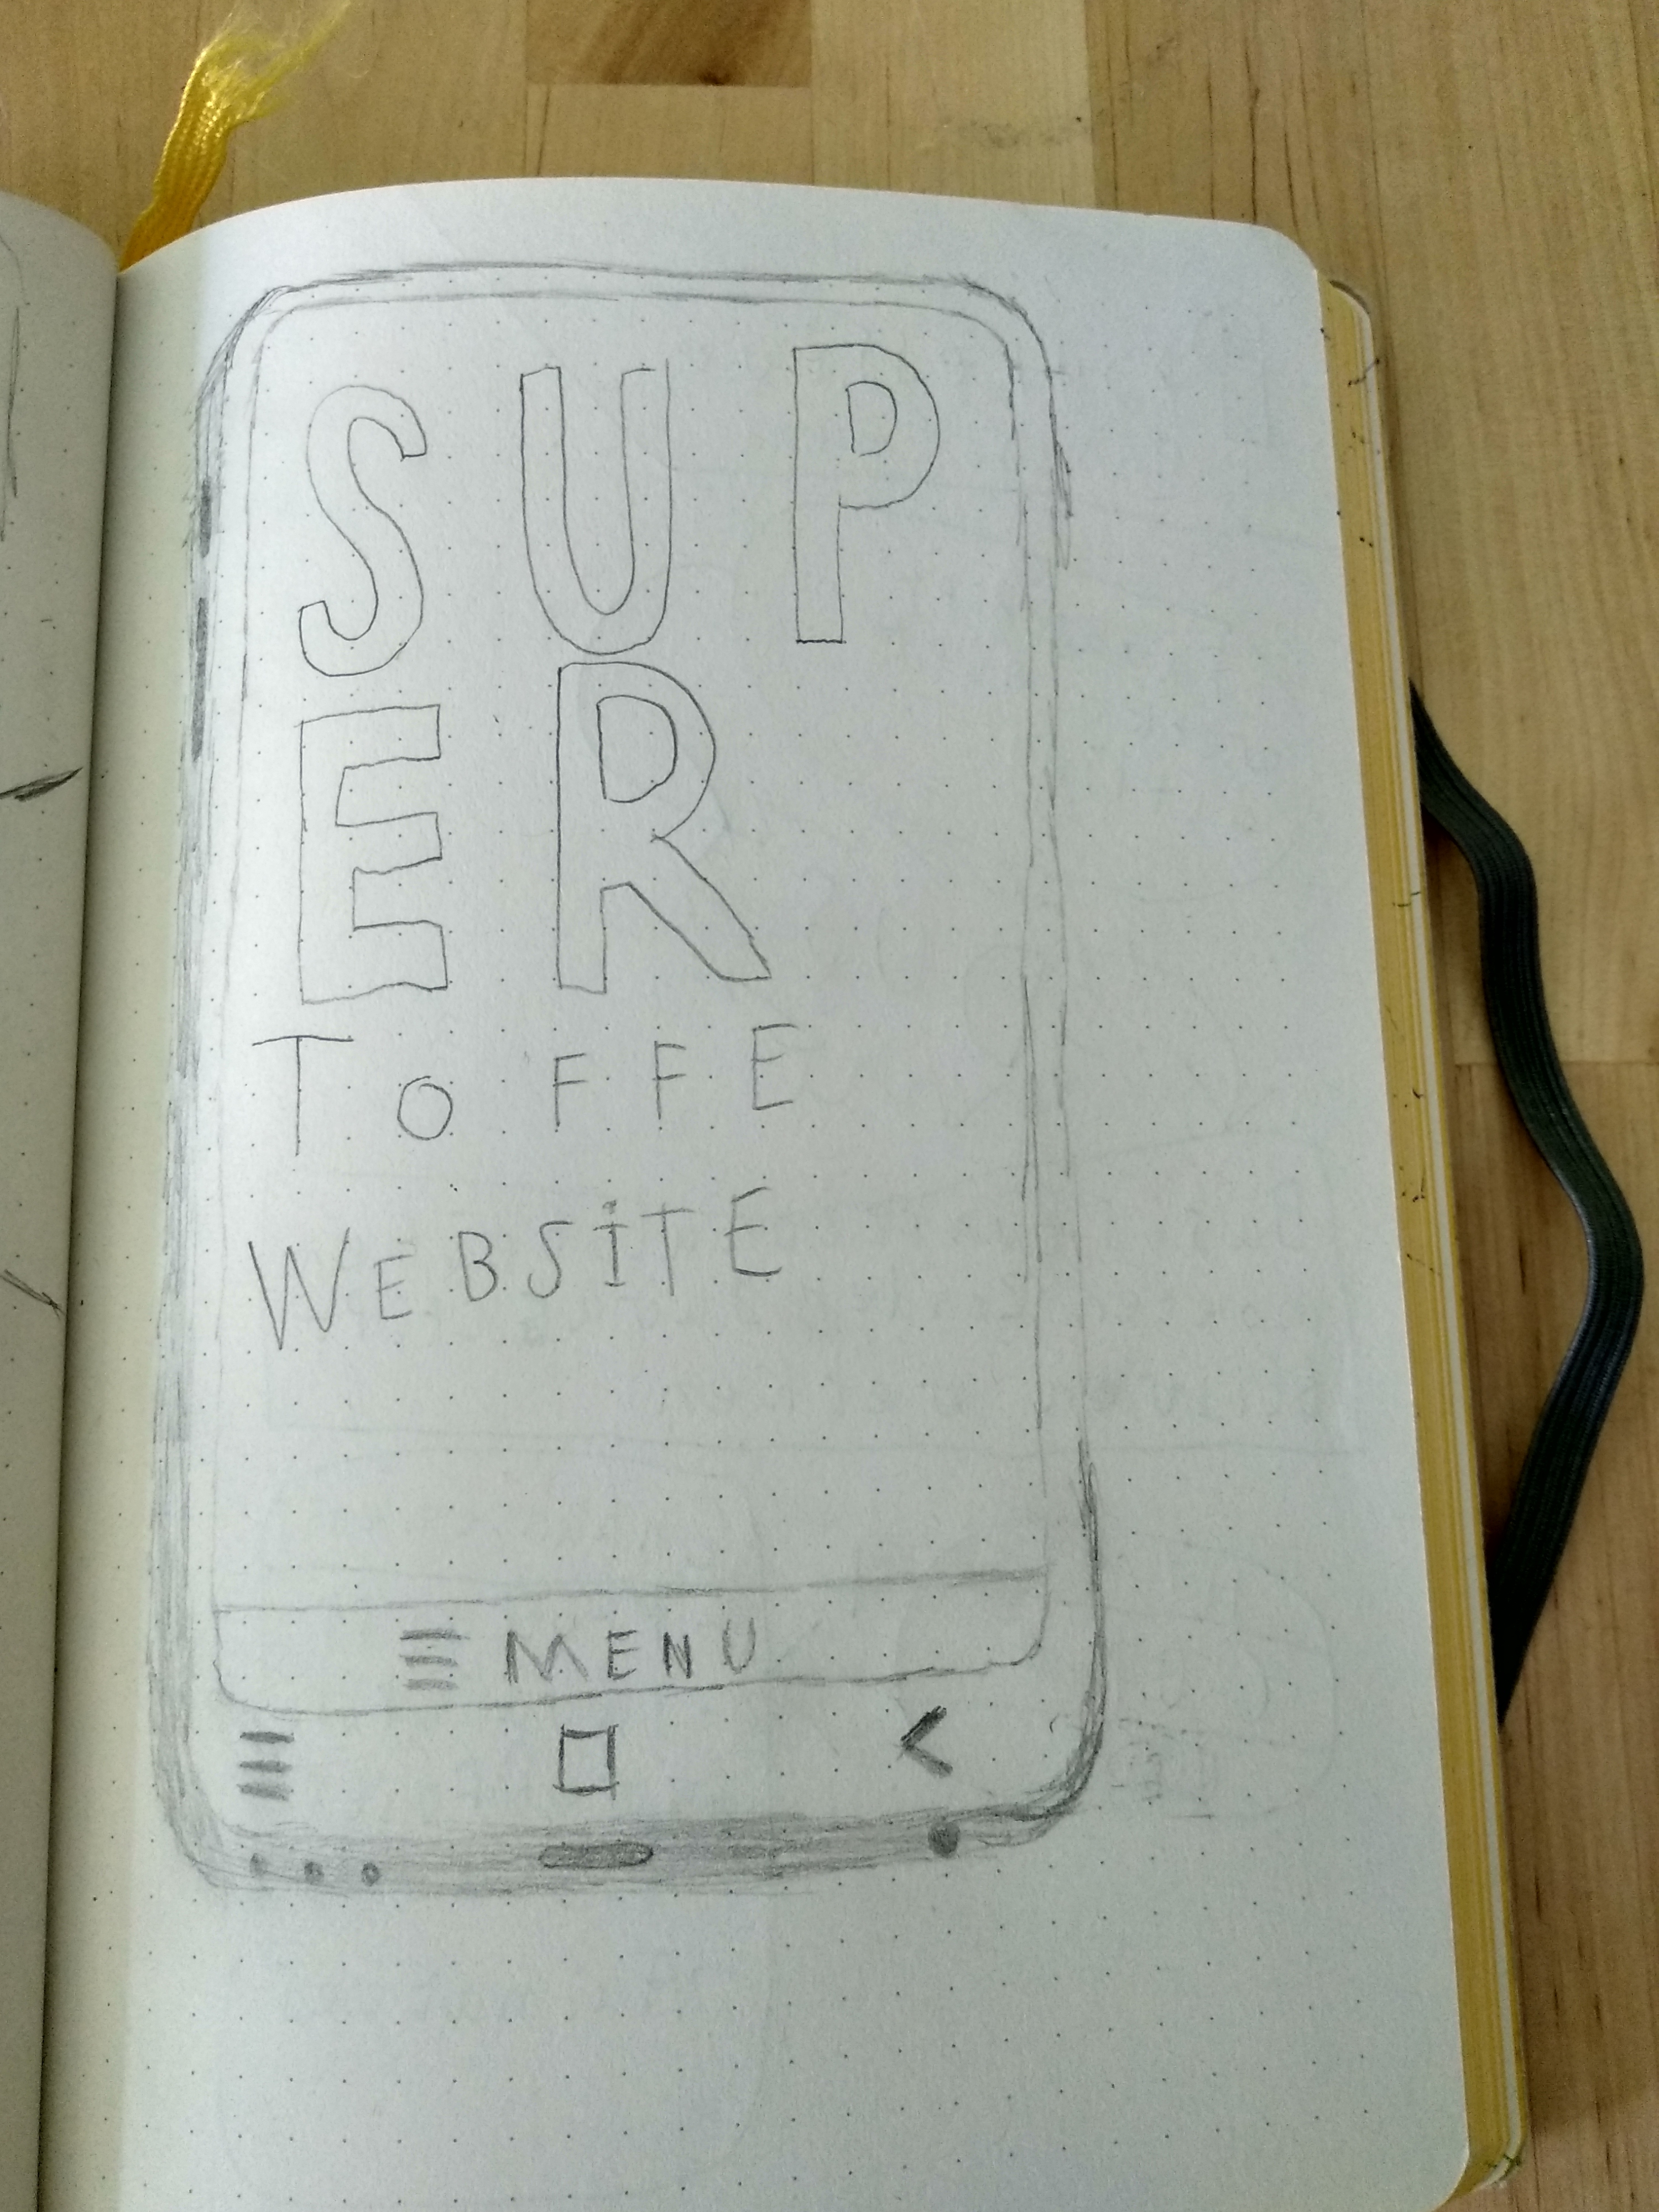 SUP
ER
TOFFE
WEBSITE
MENU